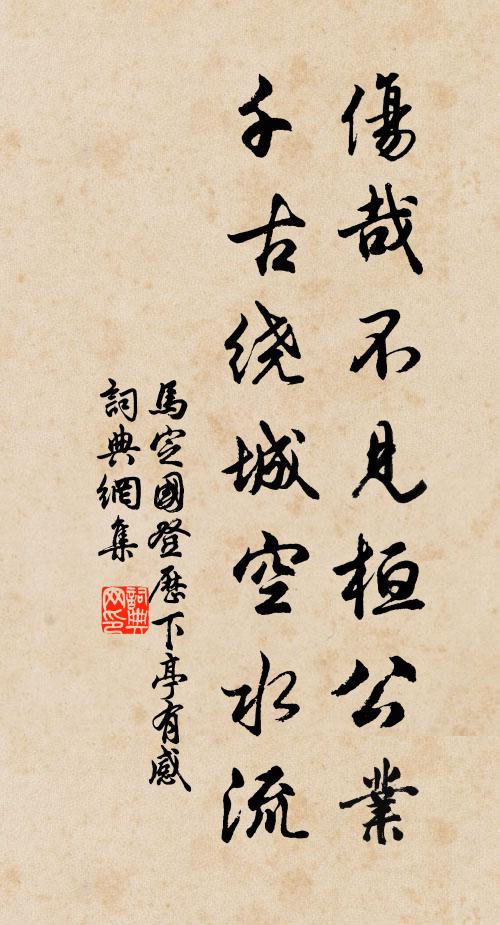 傷哉不見桓公業
千古绕城空水流
馬定國登歷下亭有感
詞典網集
詞典网印